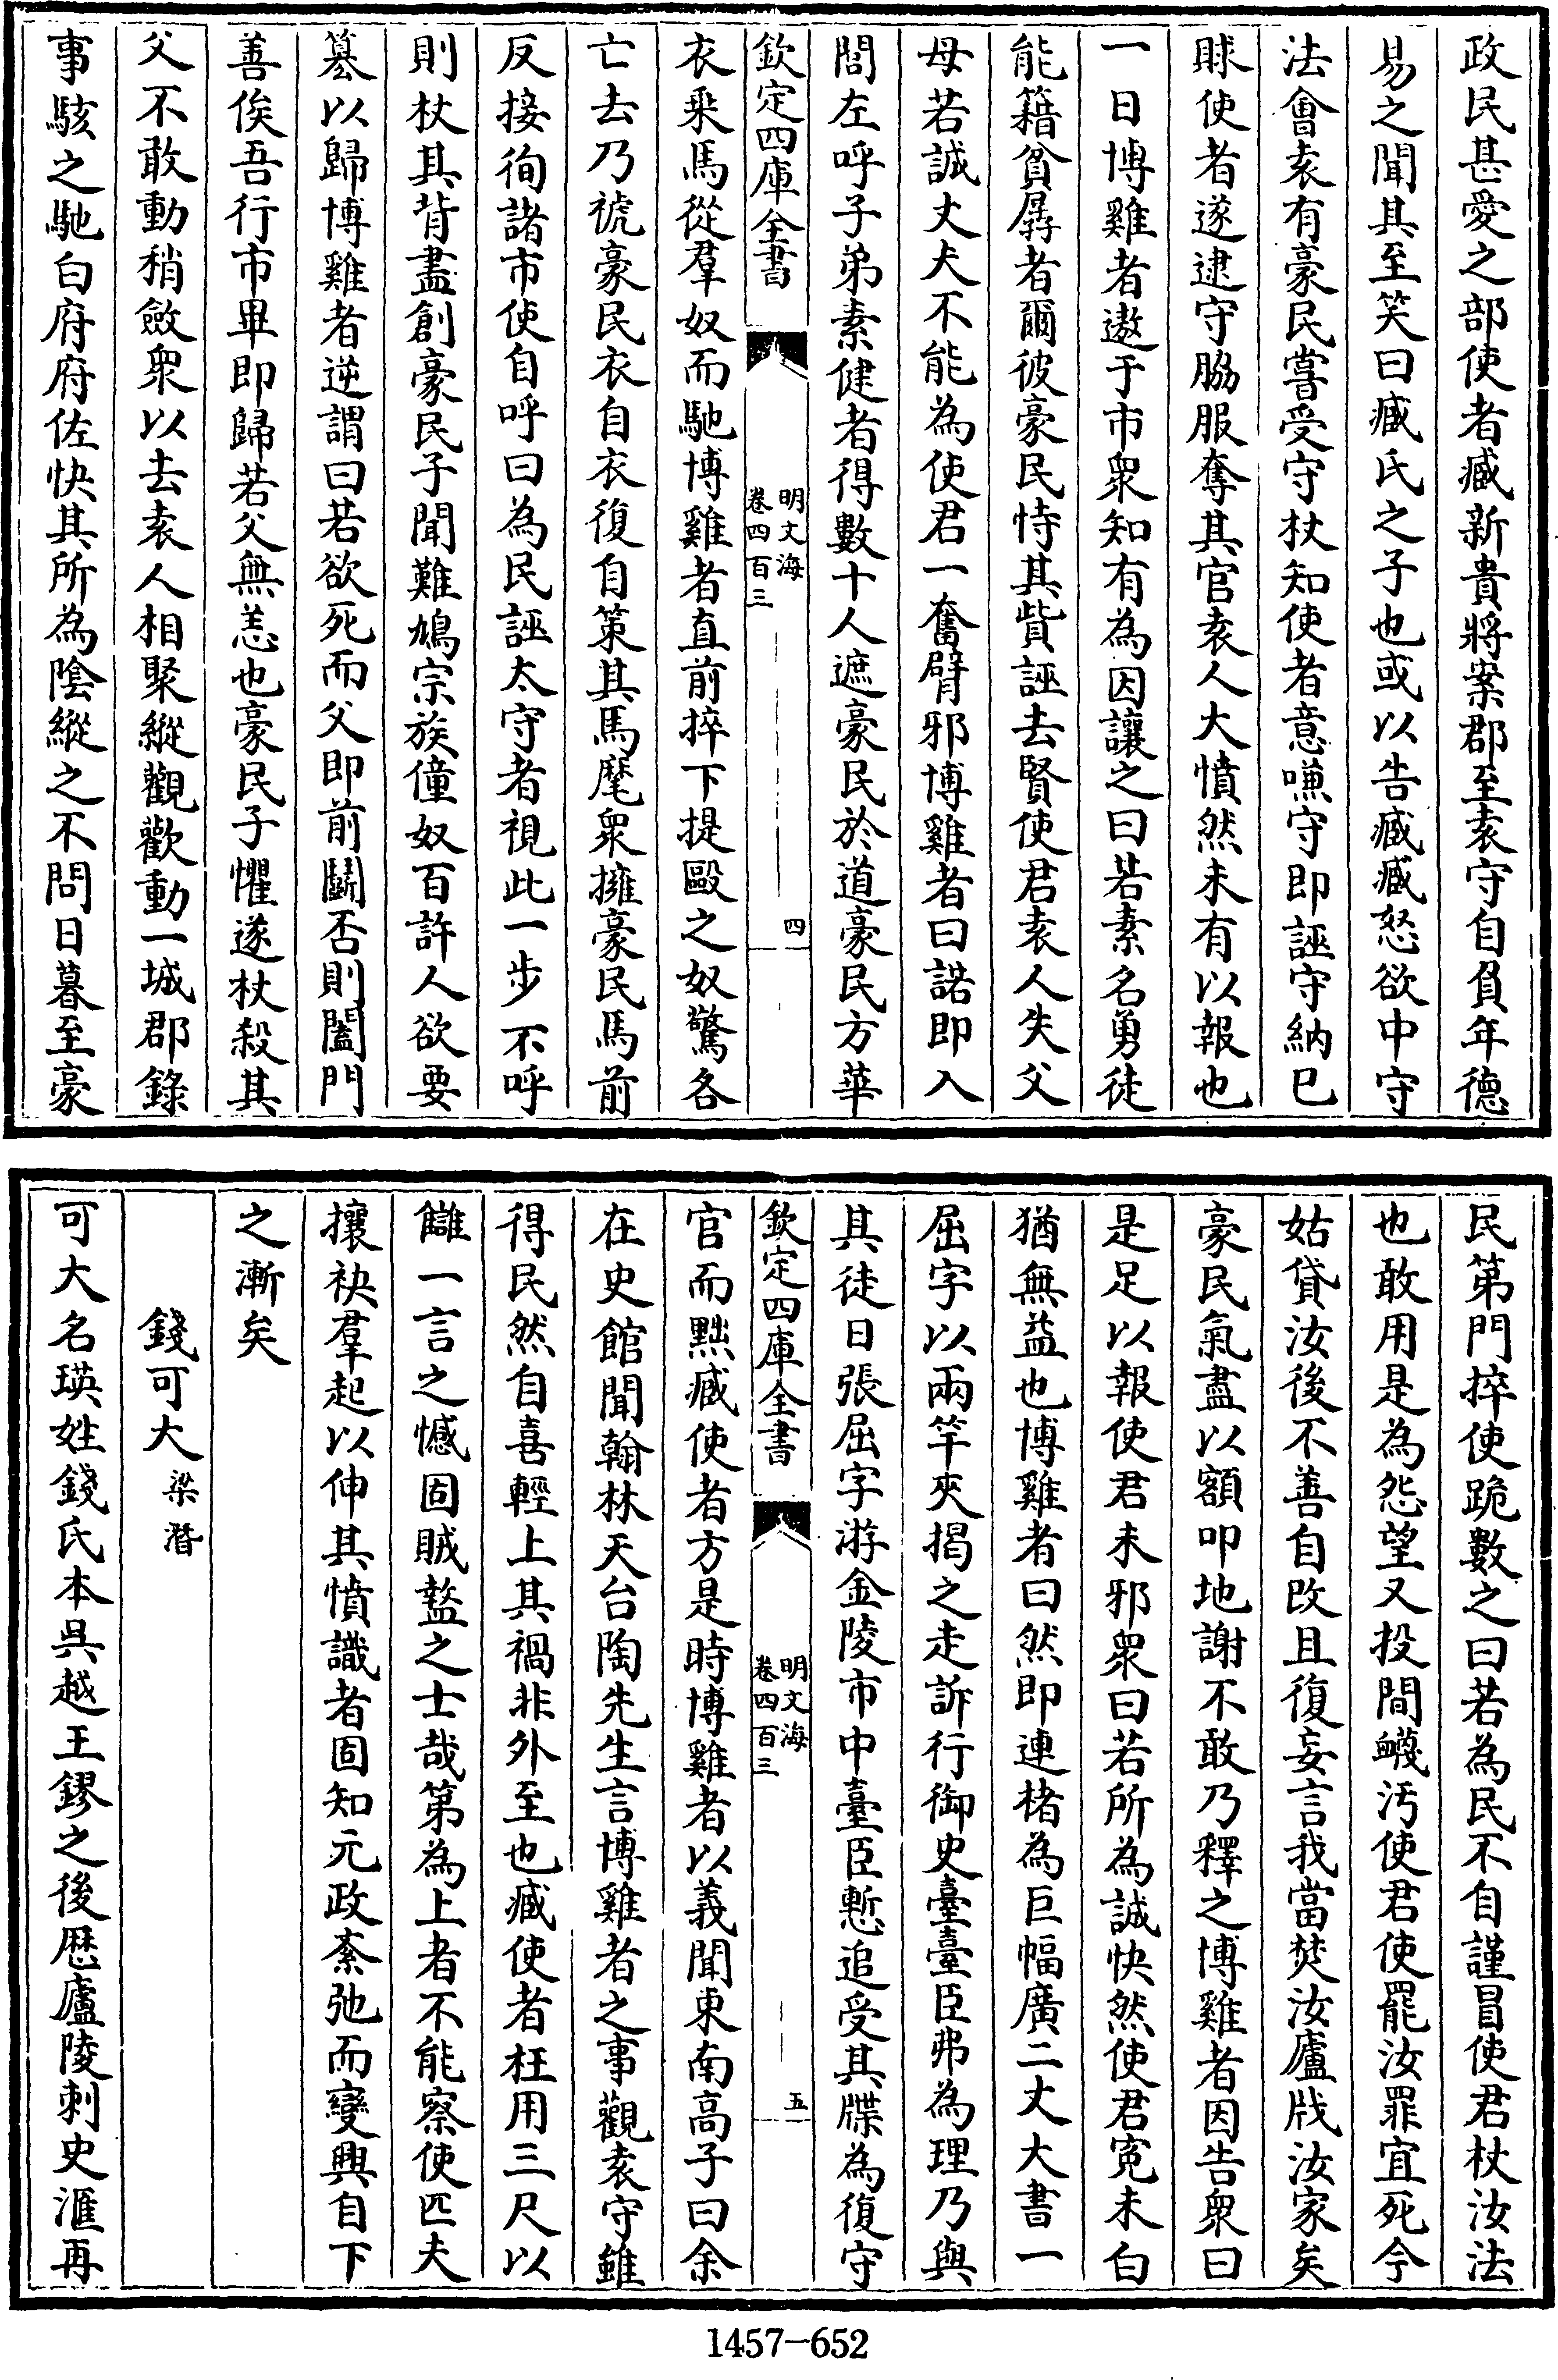 政民甚愛之部使者臧新貴將案郡至袁守自負年德
易之聞其至笑曰臧氏之子也或以告臧臧怒欲中守
法會袁有豪民嘗受守杖知使者意嗛守即誣守納已
賕使者遂逮守脇服奪其官袁人大憤然未有以報也
一日博雞者遨于市衆知有為因讓之曰若素名勇徒
能籍貧孱者爾彼豪民恃其貲誣去賢使君袁人失父
母若誠丈夫不能為使君一奮臂邪博雞者曰諾即入
閭左呼子弟素健者得數十人遮豪民於道豪民方華
欽定四庫全書
明文海
卷四百三
四
衣乘馬從羣奴而馳博雞者直前捽下提毆之奴驚各
亡去乃褫豪民衣自衣復自策其馬麾衆擁豪民馬前
反接徇諸市使自呼曰為民誣太守者視此一步不呼
則杖其背盡創豪民子聞難鳩宗族僮奴百許人欲要
篡以歸博雞者逆謂曰若欲死而父即前鬭否則闔門
善俟吾行市畢即歸若父無恙也豪民子懼遂杖殺其
父不敢動稍斂衆以去袁人相聚縱觀歡動一城郡錄
事駭之馳白府府佐快其所為陰縱之不問日暮至豪
民第門捽使跪數之曰若為民不自謹冒使君杖汝法
也敢用是為怨望又投間衊汚使君使罷汝罪宜死今
姑貸汝後不善自改且復妄言我當焚汝廬戕汝家矣
豪民氣盡以額叩地謝不敢乃釋之博雞者因告衆曰
是足以報使君未邪衆曰若所為誠快然使君寃未白
猶無益也博雞者曰然即連楮為巨幅廣二丈大書一
屈字以兩竿夾揭之走訴行御史臺臺臣弗為理乃與
其徒日張屈字游金陵市中臺臣慙追受其牒為復守
欽定四庫全書
明文海
卷四百三
五
官而黜臧使者方是時博雞者以義聞東南高子曰余
在史館聞翰林天台陶先生言博雞者之事觀袁守雖
得民然自喜輕上其禍非外至也臧使者枉用三尺以
讎一言之憾固賊盭之士哉第為上者不能察使匹夫
攘袂羣起以伸其憤識者固知元政紊弛而變興自下
之漸矣
錢可大梁潛
可大名瑛姓錢氏本吳越王鏐之後歴廬陵刺史滙再
1457-652